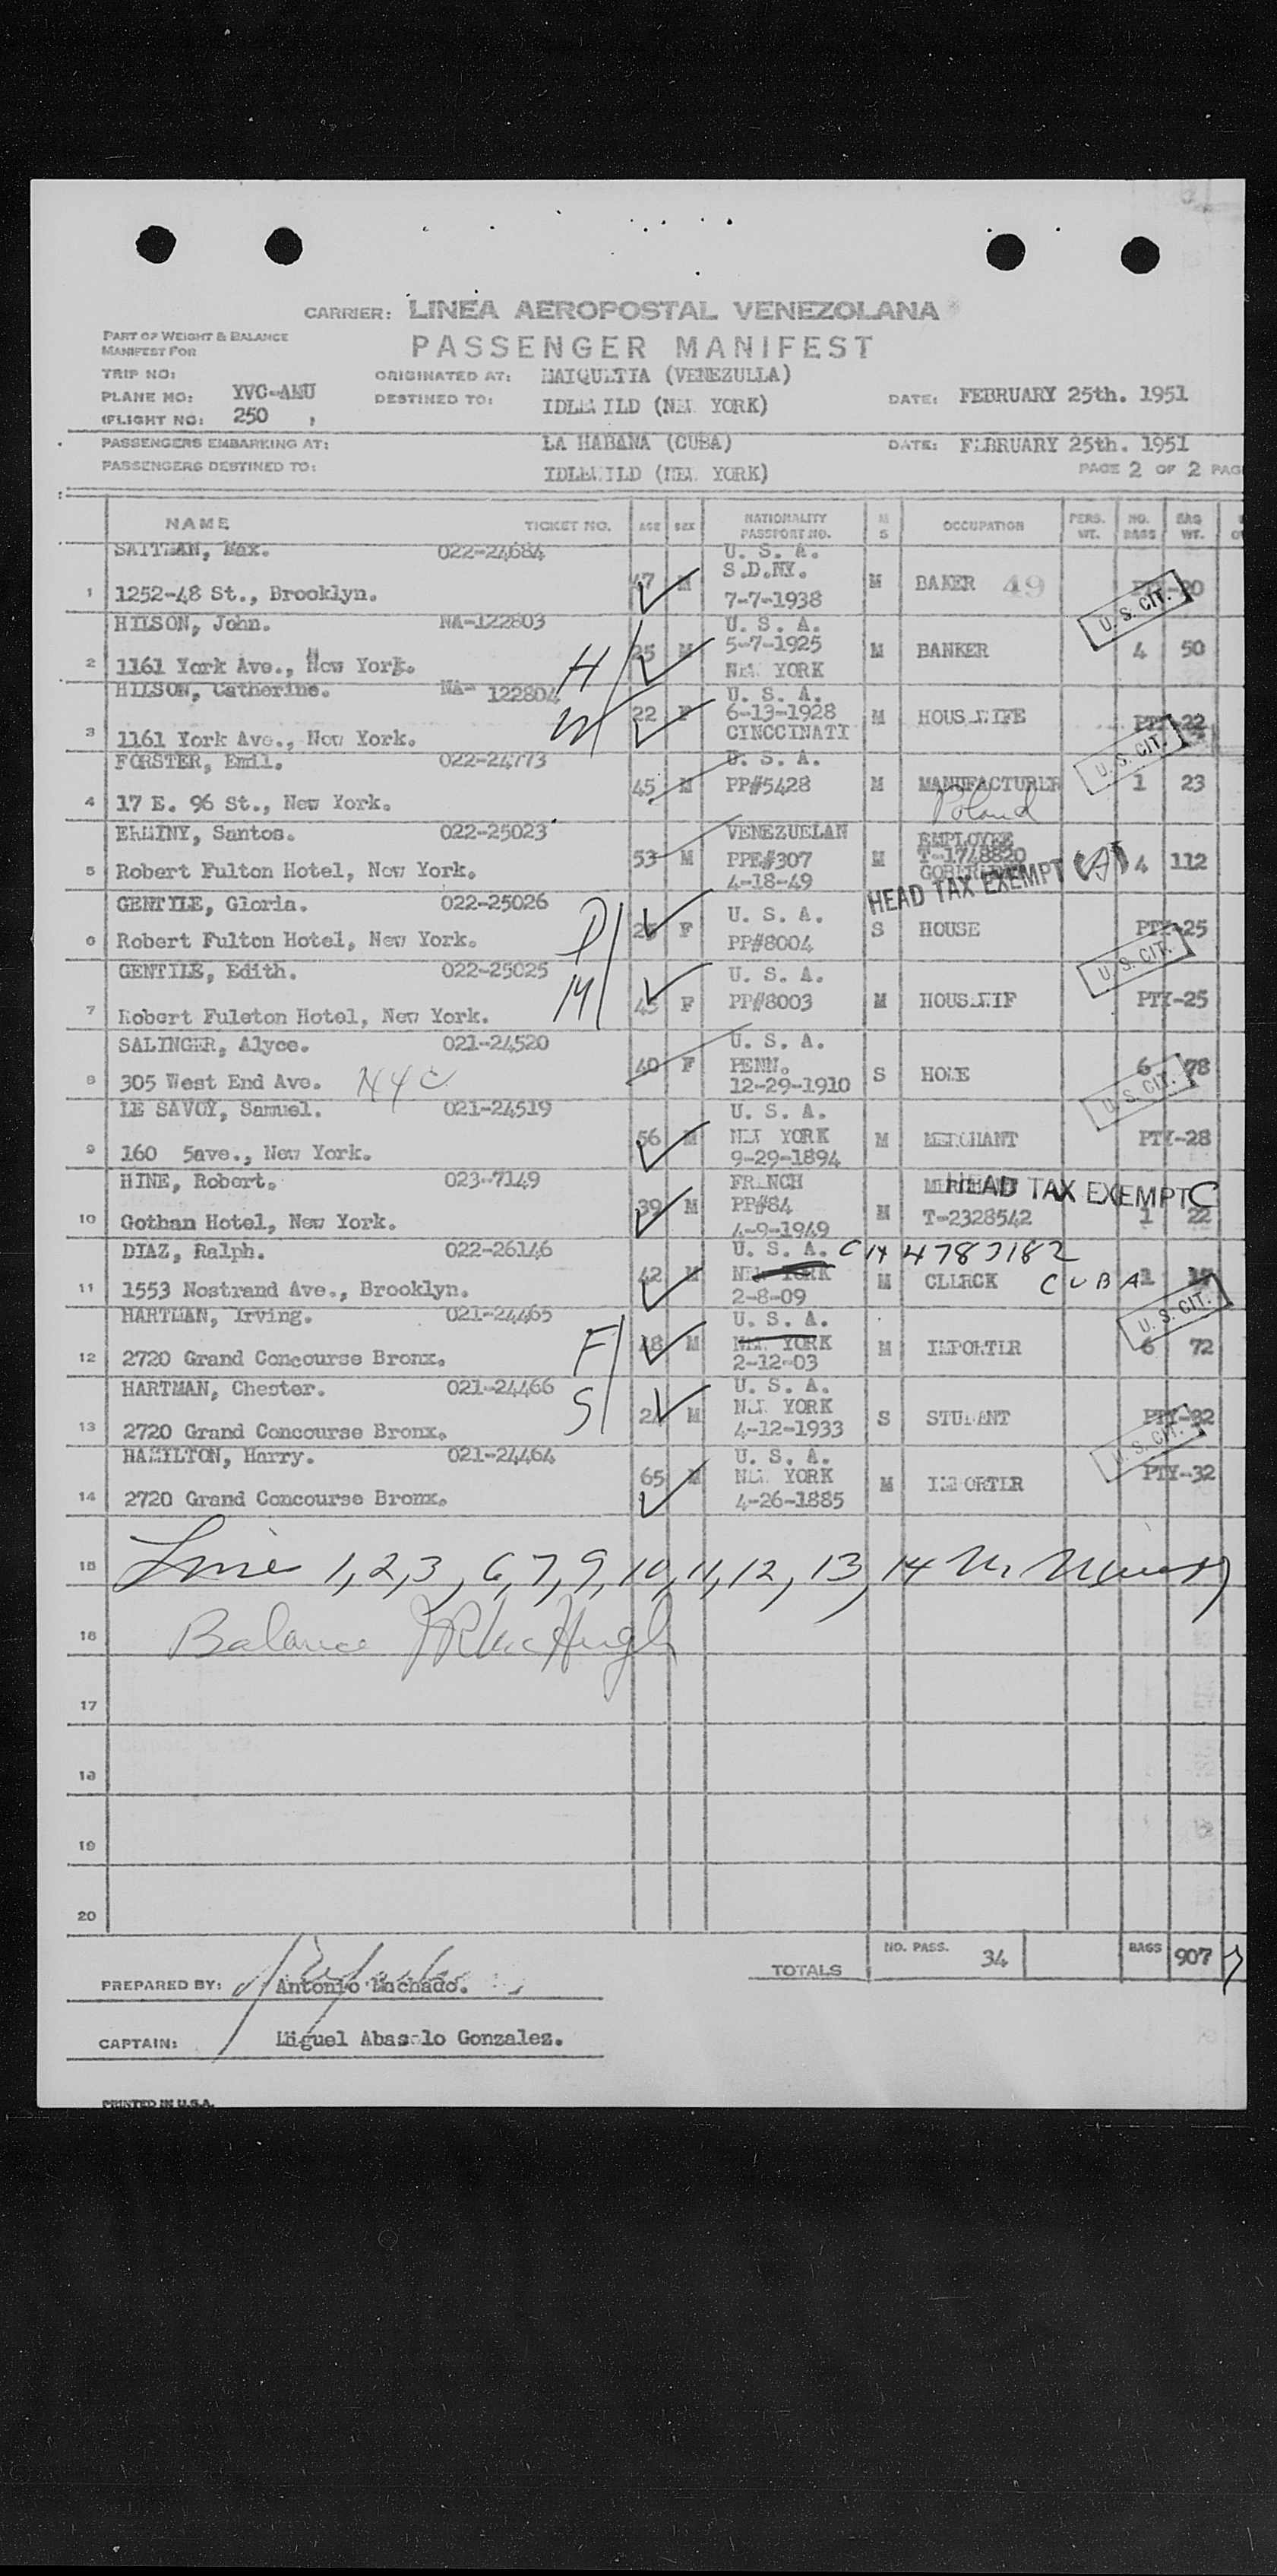 CARRIER: LINEA AEROPOSTAL VENEZOLANA
PART OF WEIGHT & BALANCE
MANIFEST FOR
PASSENGER MANIFEST
TRIP NO:
ORIGINATED AT: MAIQUETIA (VENEZULLA)
PLANE NO: YVC-AMU
DESTINED TO: IDLEWILD (NEW YORK)
DATE: FEBRUARY 25th. 1951
FLIGHT NO: 250
PASSENGERS EMBARKING AT: LA HABANA (CUBA) DATE: FEBRUARY 25th. 1951
PASSENGERS DESTINED TO: IDLEWILD (NEW YORK) PAGE 2 OF 2 PAG
NAME TICKET NO. AGE SEX NATIONALITY PASSPORT NO. M S OCCUPATION PERS. WT. NO. BAGS BAG WT.
022-24684 U. S. A.
S.D.NY.
1 1252-48 St., Brooklyn. 47 M 7-7-1938 M BAKER 49 PTY-20
U. S. CIT.
HILSON, John. NA-122803 U. S. A.
25 M 5-7-1925 M BANKER 4 50
2 1161 York Ave., New York. H NEW YORK
HILSON, Catherine. NA- 122804 U. S. A.
W 22 F 6-13-1928 M HOUSEWIFE PTY-22
3 1161 York Ave., New York. CINCCINATI
U. S. CIT.
FORSTER, Emil. 022-24773 U. S. A.
45 M PP#5428 M MANUFACTURER 1 23
4 17 E. 96 St., New York. Poland
Santos. 022-25023 VENEZUELAN EMPLOYEE
53 M PPE#307 M T-1748820 4 112
5 Robert Fulton Hotel, New York. 4-18-49
HEAD TAX EXEMPT (A)
GENTILE, Gloria. 022-25026 U. S. A.
6 Robert Fulton Hotel, New York. D F PP#8004 S HOUSE PTY-25
U. S. CIT.
GENTILE, Edith. 022-25025 U. S. A.
M 45 F PP#8003 M HOUSEWIF PTY-25
7 Robert Fuleton Hotel, New York.
SALINGER, Alyce. 021-24520 U. S. A.
40 F PENN. 6 78
8 305 West End Ave. NYC 12-29-1910 S HOME
U. S. CIT.
LE SAVOY, Samuel. 021-24519 U. S. A.
56 M NEW YORK M MERCHANT PTY-28
9 160 5ave., New York. 9-29-1894
HINE, Robert. 023-7149 FRENCH
HEAD TAX EXEMPT C
39 M PP#84
10 Gothan Hotel, New York. 4-9-1949 M T-2328542 1 22
DIAZ, Ralph. 022-26146 U. S. A.
42 M NEW YORK M CLERCK CUBA 1
11 1553 Nostrand Ave., Brooklyn. 2-8-09
U. S. CIT.
HARTMAN, Irving. 021-24465 U. S. A.
F 48 M NEW YORK M IMPORTER 6 72
12 2720 Grand Concourse Bronx. 2-12-03
HARTMAN, Chester. 021-24466 U. S. A.
S M NEW YORK S STUDANT PTY-32
13 2720 Grand Concourse Bronx. 4-12-1933
U. S. CIT.
HAMILTON, Harry. 021-24464 U. S. A.
65 M NEW YORK M IMPORTER PTY-32
14 2720 Grand Concourse Bronx. 4-26-1885
15 Line 1,2,3, 6,7,9,10,11,12, 13, 14
16 Balance
17
18
19
20
TOTALS NO. PASS. 34 BAGS 907
PREPARED BY: Antonio Machado.
CAPTAIN: Miguel Abasolo Gonzalez.
PRINTED IN U.S.A.